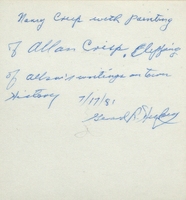 Nancy Crisp with painting
of Allan Crisp. Clipping
of Allan's writings on town
History 7/17/81